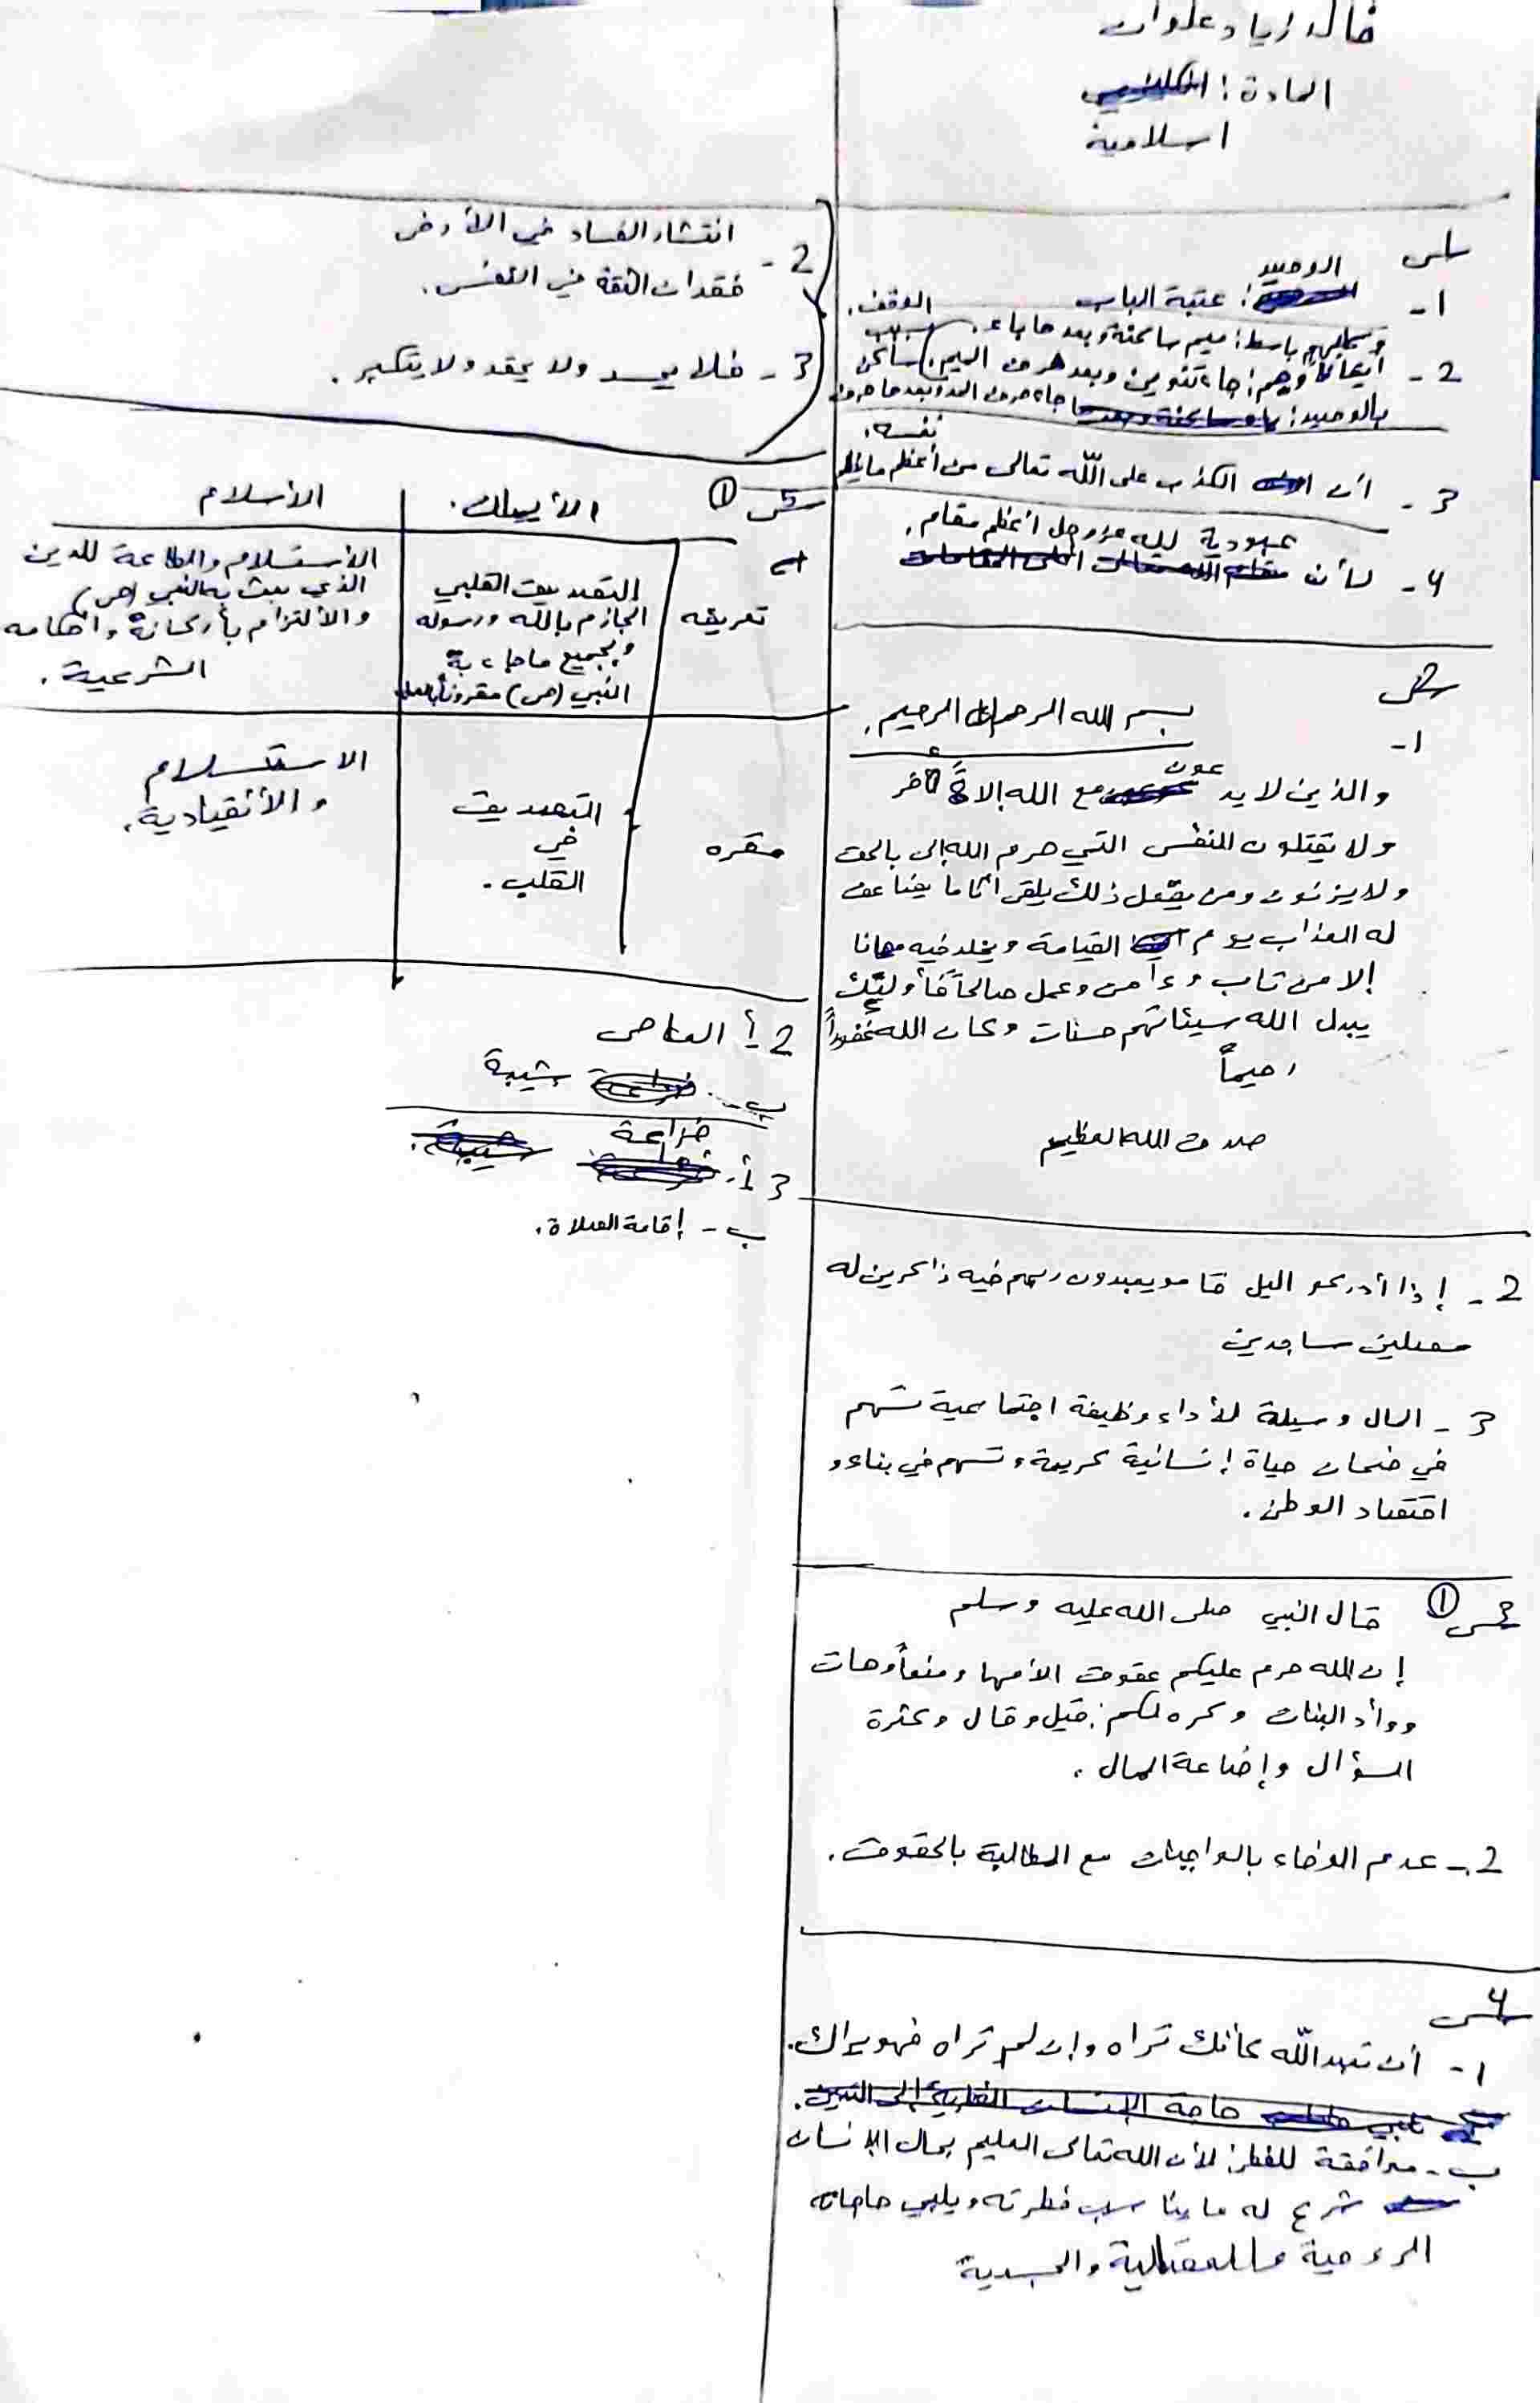 خالد زياد علوان
المادة:
اسلامية
س1
1- الوصيد: عتبة الباب الوقف.
وكلبهم باسط: ميم ساكنة وبعد ها باء. بسبب
2- أيقاظاً وهم: جاء تنوين وبعد حرف
بالوصيد: جاء حرف المد وبعد ها حرف ساكن
نفسه.
3- ان الكذب على الله تعالى من أعظم ما يظلم
عبودية لله عزوجل أعظم مقام.
4- لأن
س2
1- بسم الله الرحمن الرحيم.
والذين لا يدعون مع الله إلاهً ءاخر
ولا يقتلون النفس التي حرم الله إلى بالحق
ولا يزنون ومن يفعل ذلك يلقى اثاماً يضاعف
له العذاب يوم القيامة ويخلد فيه مهانا
إلا من تاب وءامن وعمل صالحاً فأولئك
يبدل الله سيئاتهم حسنات وكان الله غفوراً
رحيماً
صدق الله العظيم
2- إذا أدركو اليل قامو يعبدون ربهم فيه ذاكرين له
مصلين ساجدين
3- المال وسيلة لأداء وظيفة اجتماعية تسهم
في ضمان حياة إنسانية كريمة وتسهم في بناء و
اقتصاد الوطن.
س3 ① قال النبي صلى الله عليه وسلم
إن الله حرم عليكم عقوق الأمها ومنعاً وهات
ووأد البنات وكره لكم: قيل وقال وكثرة
السؤال وإضاعة المال.
2- عدم الوفاء بالواجبات مع المطالبة بالحقوق.
س4
1- أن تعبد الله كأنك تراه وإن لم تراه فهو يراك.
حاجة الإنسان الفطرية إلى التدين.
ب- موافقة للفطرة لأن الله تعالى العليم بحال الإنسان
شرع له ما يناسب فطرته ويلبي حاجاته
الروحية والعقلية والجسدية
2- انتشار الفساد في الأرض
فقدان الثقة في النفس.
3- فلا يحسد ولا يحقد ولا يتكبر.
س5 ① الأيمان. الأسلام
تعريفه
التصديق القلبي
الجازم بالله ورسوله
وبجميع ما جاء به
النبي (ص) مقروناً بالعمل
الأستسلام والطاعة للدين
الذي بعث به النبي (ص)
والألتزام بأركانه واحكامه
الشرعية.
مقره
التصديق
في
القلب.
الاستسلام
والأنقيادية.
2 أ العاص
ب- شيبة
3 أ- خزاعة
ب- إقامة الصلاة.